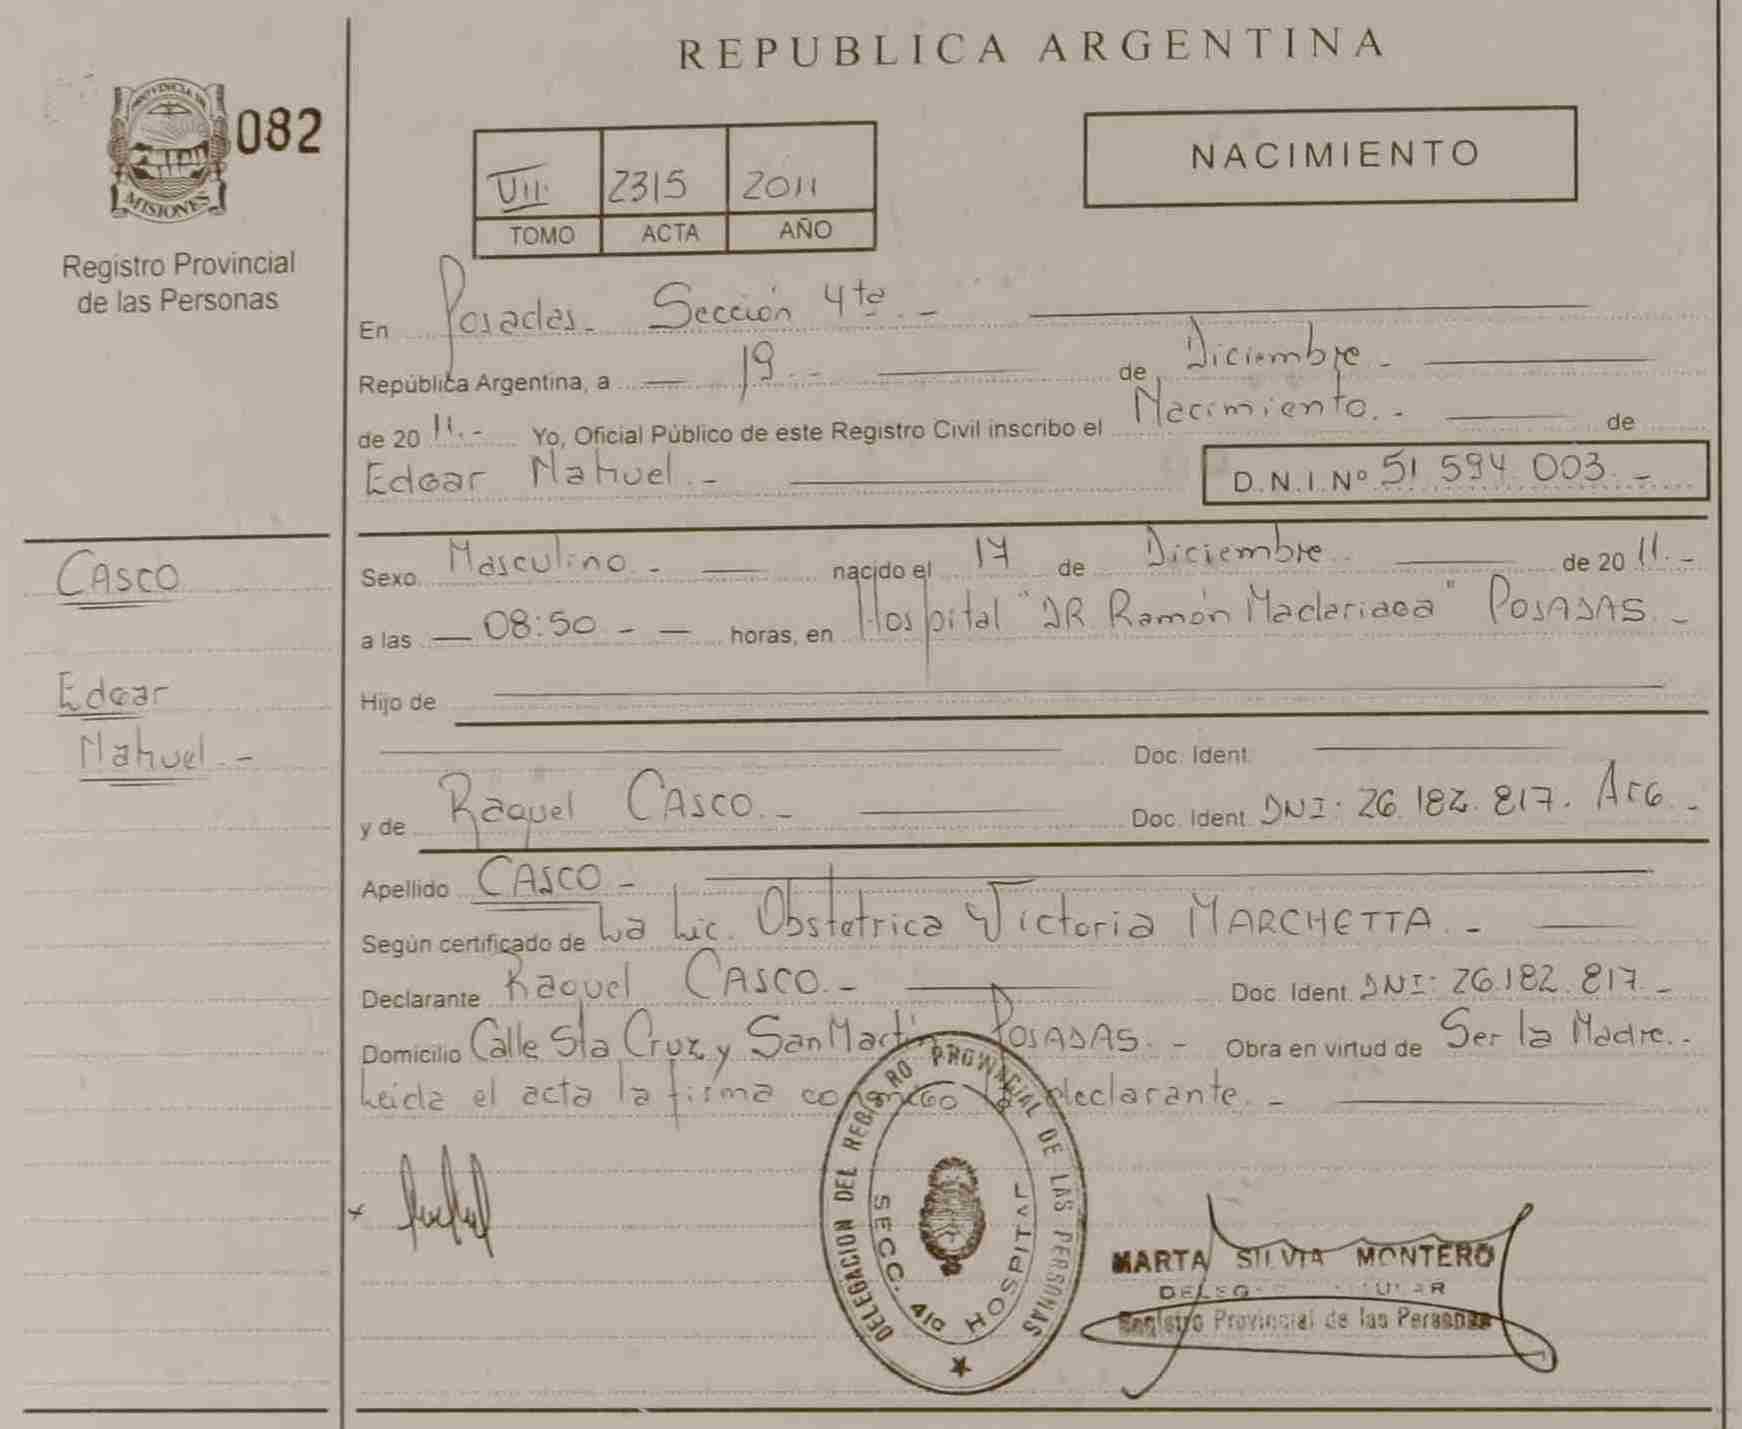 REPUBLICA ARGENTINA
PROVINCIA DE
MISIONES
082
Registro Provincial
de las Personas
VII. 2315 2011
TOMO ACTA AÑO
NACIMIENTO
En Posadas. Sección 4ta. -
República Argentina, a 19. - de Diciembre. -
de 20 11. - Yo, Oficial Público de este Registro Civil inscribo el Nacimiento. - de
Edgar Nahuel. - D.N.I. Nº 51 594 003. -
CASCO
Edgar
Nahuel. -
Sexo Masculino. - nacido el 17 de Diciembre. de 20 11. -
a las 08:50 - - horas, en Hospital "DR Ramón Madariaga" POSADAS. -
Hijo de
Doc. Ident.
y de Raquel CASCO. - Doc. Ident. DNI: 26.182.817. Arg. -
Apellido CASCO -
Según certificado de La Lic. Obstetrica Victoria MARCHETTA. -
Declarante Raquel CASCO. - Doc. Ident. DNI: 26.182.817. -
Domicilio Calle Sta Cruz y San Martín POSADAS. - Obra en virtud de Ser la Madre. -
Leida el acta la firma conmigo la declarante. -
DELEGACION DEL REGISTRO PROVINCIAL DE LAS PERSONAS
SECC. 4ta HOSPITAL
MARTA SILVIA MONTERO
Registro Provincial de las Personas